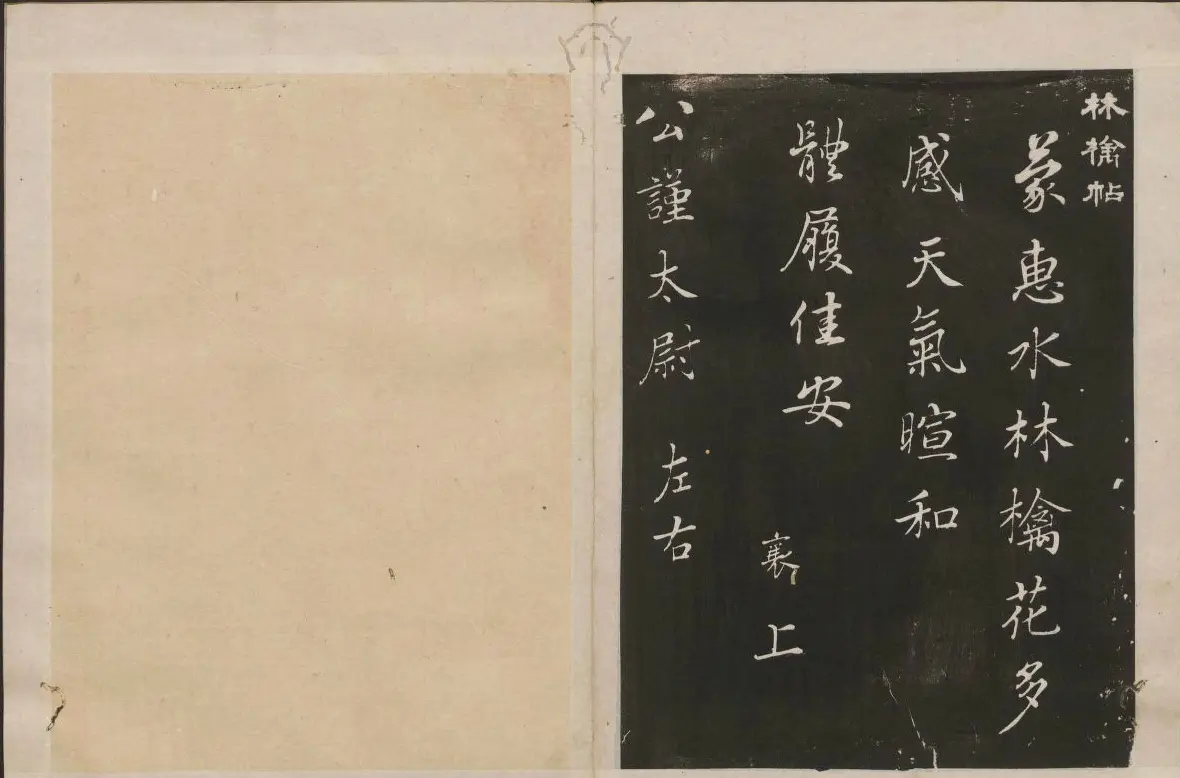 林檎帖
蒙惠水林檎花多
感天氣暄和
體履佳安
襄上
公謹太尉 左右